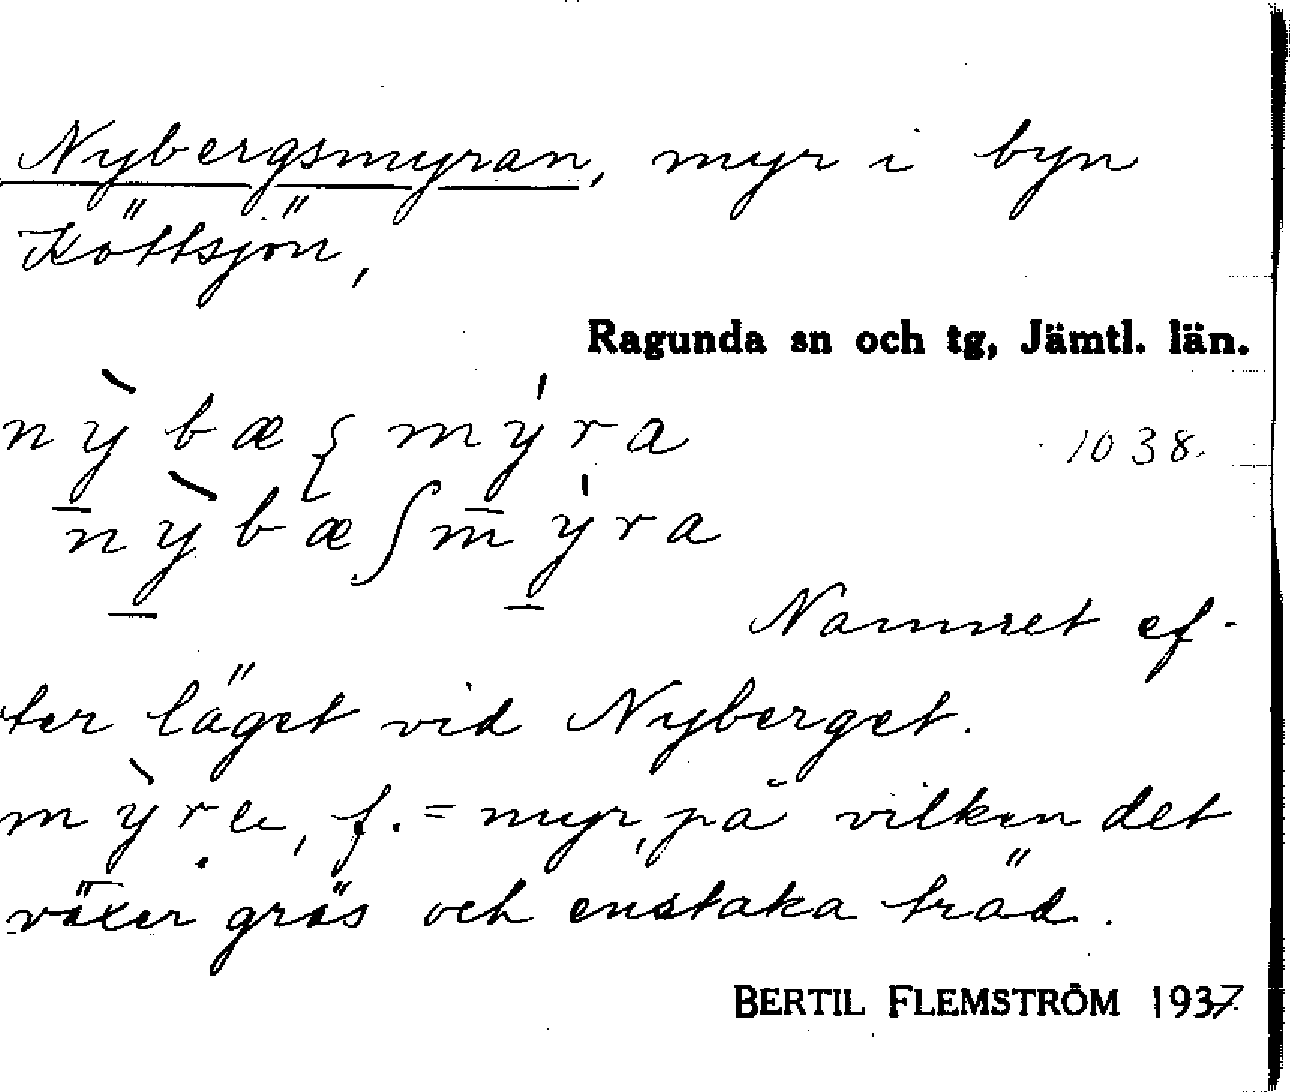 Nybergsmyran, myr i byn
Köttsjön,
Ragunda sn och tg, Jämtl. län.
nỳbæ mýra
1038.
nỳbæʃmýra
Namnet ef-
ter läget vid Nyberget.
mỳre, f. = myr, på vilken det
växer gräs och enstaka träd.
BERTIL FLEMSTRÖM 1937